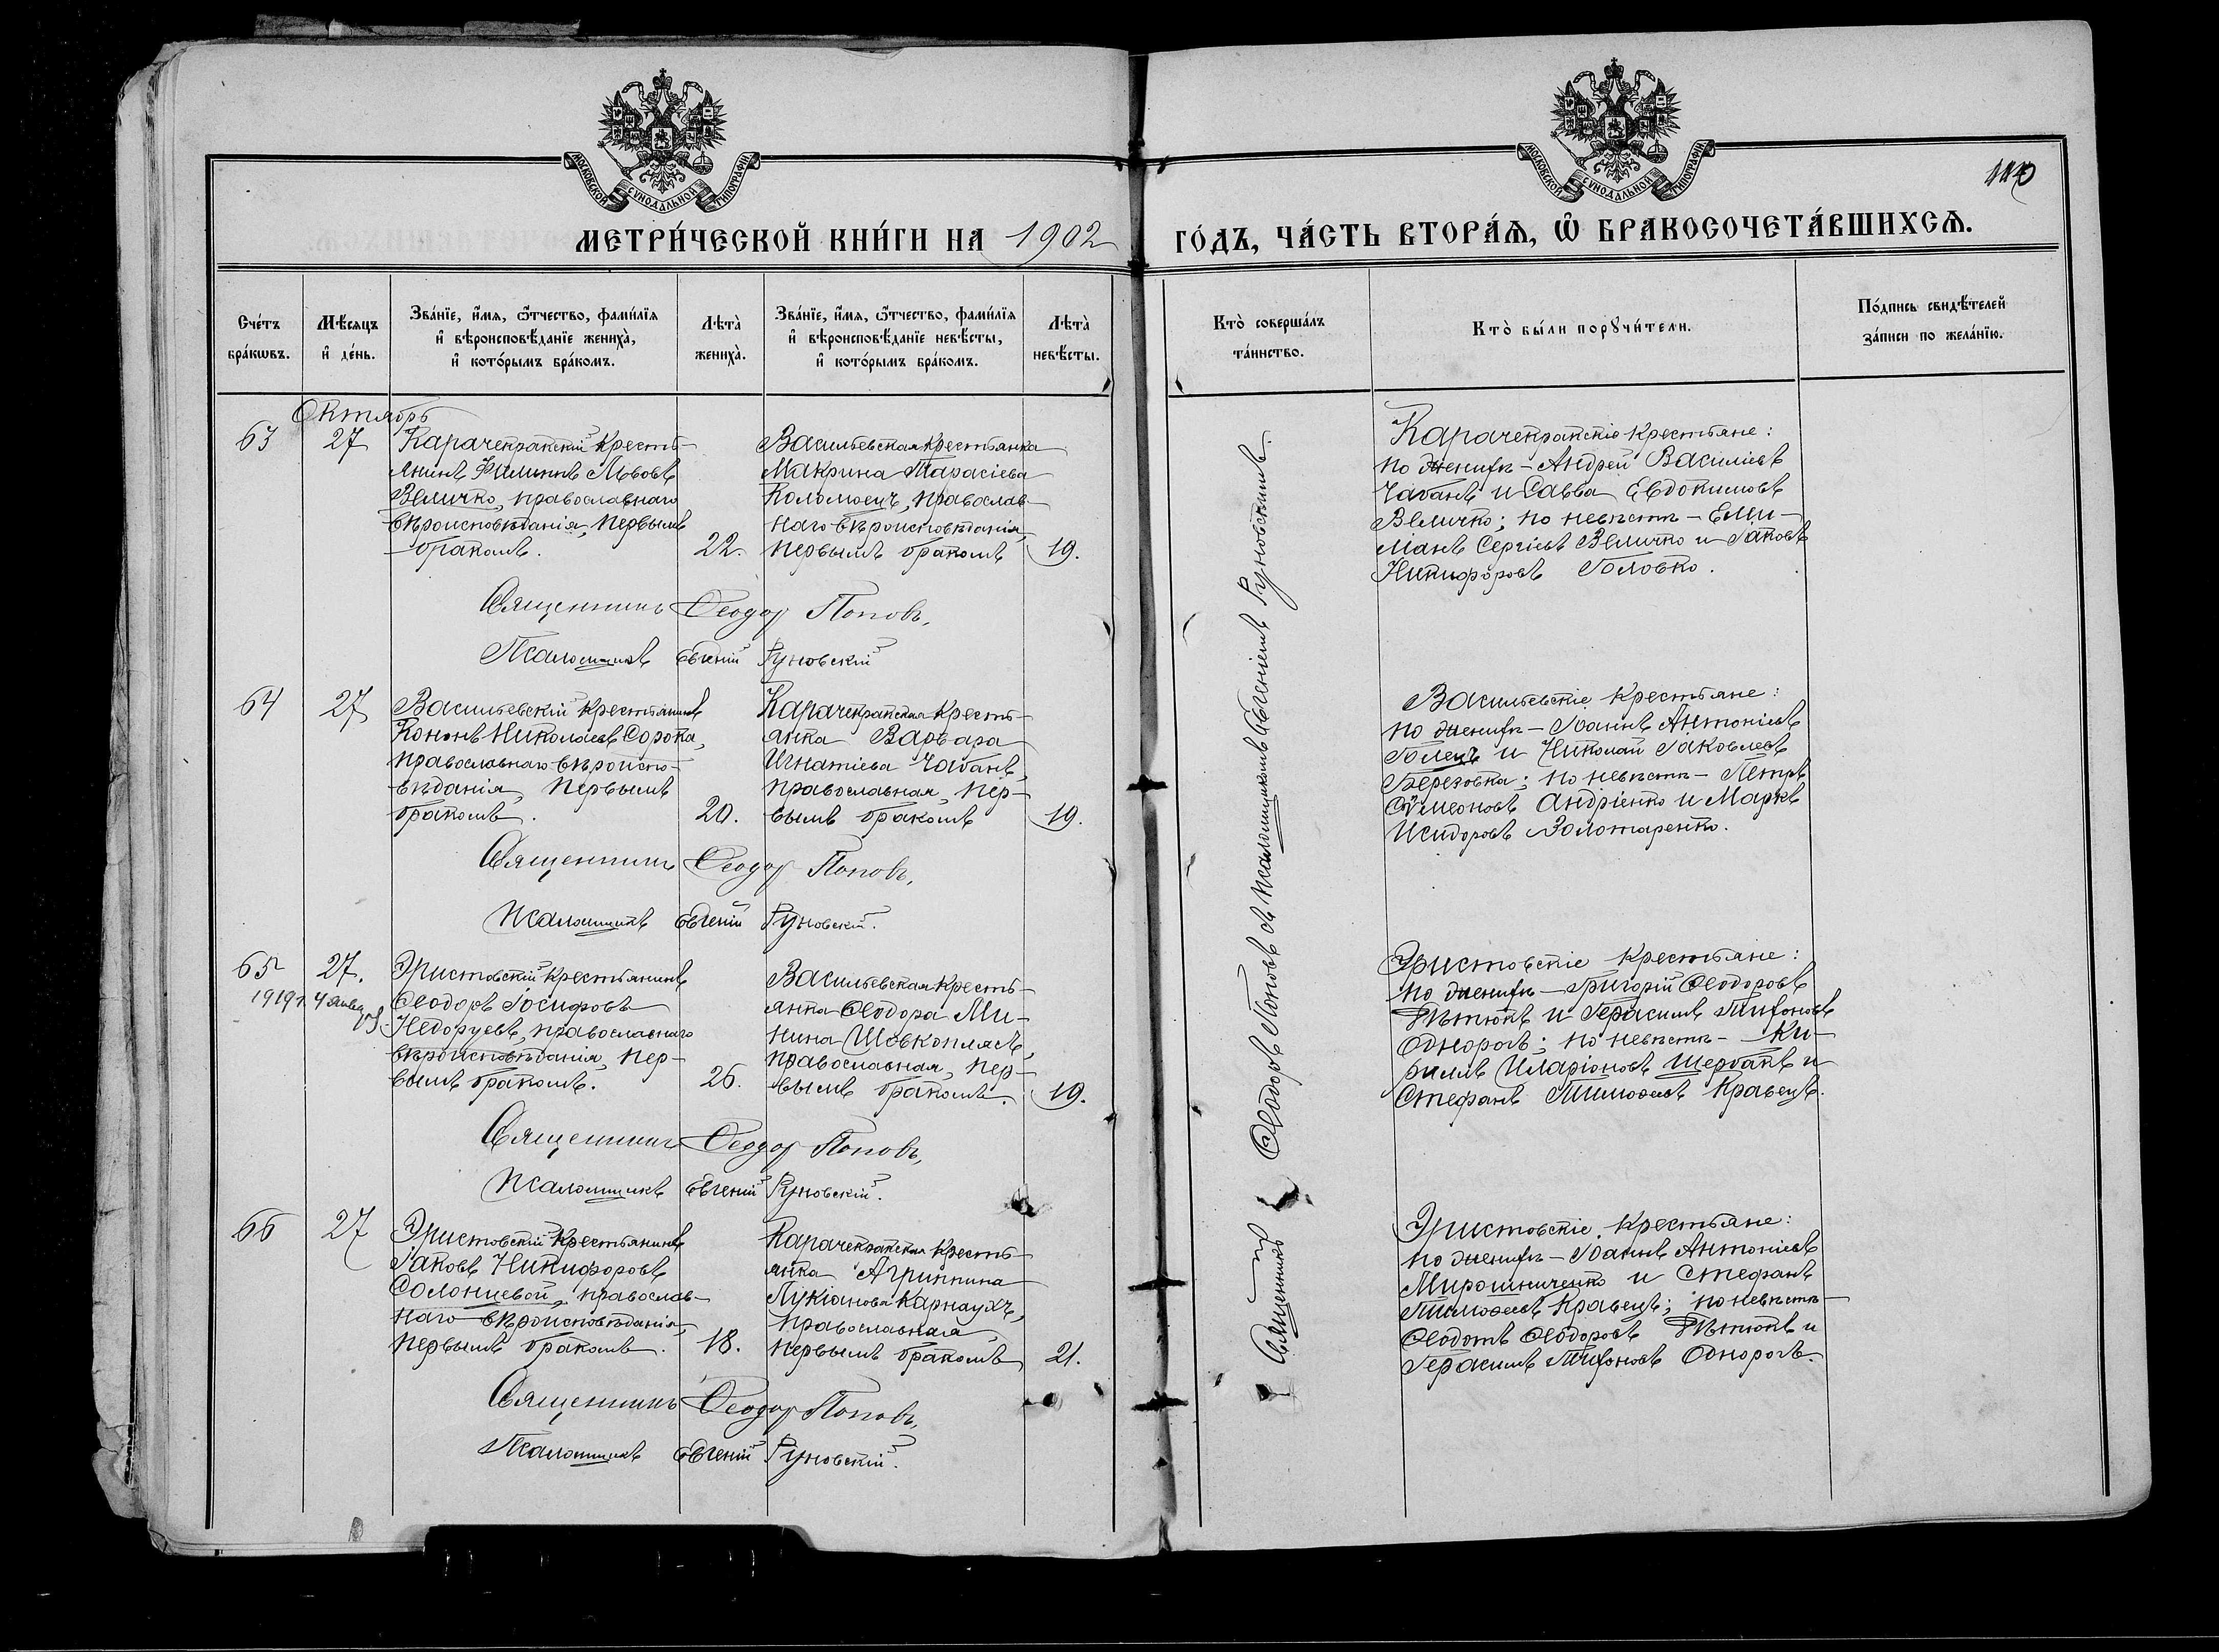 МОСКОВСКОЙ СѴНОДАЛЬНОЙ ТИПОГРАФІИ
МЕТРИ́ЧЕСКОЙ КНИ́ГИ НА 1902
Сче́тъ бра́кѡвъ.
Мѣ́сяцъ и҆ де́нь.
Зва́нїе, и҆́мя, ѻ҆́тчество, фами́лїя и҆ вѣроисповѣ́данїе жениха̀, и҆ кото́рымъ бра́комъ.
Лѣта̀ жениха̀.
Зва́нїе, и҆́мя, ѻ҆́тчество, фами́лїя и҆ вѣроисповѣ́данїе невѣ́сты, и҆ кото́рымъ бра́комъ.
Лѣта̀ невѣ́сты.
Октябрь
63
27
Карачекракскій кресть-
янинъ Филиппъ Львовъ
Величко, православнаго
вѣроисповѣданія, первымъ
бракомъ.
22.
Васильевская крестьянка
Макрина Тарасіева
Коломоецъ, православ-
наго вѣроисповѣданія,
первымъ бракомъ
19.
Священникъ Ѳеодоръ Поповъ,
Псаломщикъ Евгеній Руновскій
64
27
Васильевскій крестьянинъ
Кононъ Николаевъ Сорока,
православнаго вѣроиспо-
вѣданія, первымъ
бракомъ.
20.
Карачекракская кресть-
янка Варвара
Игнатіева Чабанъ,
православная, пер-
вымъ бракомъ
19.
Священникъ Ѳеодоръ Поповъ,
Псаломщикъ Евгеній Руновскій.
65
27.
1919 г. 4 январ
Эристовскій крестьянинъ
Ѳеодоръ Іосифовъ
Недоруевъ, православнаго
вѣроисповѣданія, пер-
вымъ бракомъ.
26.
Васильевская кресть-
янка Ѳеодора Ми-
нина Шовкоплясъ,
православная, пер-
вымъ бракомъ.
19.
Священникъ Ѳеодоръ Поповъ,
Псаломщикъ Евгеній Руновскій.
66
27
Эристовскій крестьянинъ
Іаковъ Никифоровъ
Солонцевой, православ-
наго вѣроисповѣданія,
первымъ бракомъ.
18.
Карачекракская кресть-
янка Агриппина
Лукіанова Карнаухъ,
православная,
первымъ бракомъ
21.
Священникъ Ѳеодоръ Поповъ,
Псаломщикъ Евгеній Руновскій.
МОСКОВСКОЙ СѴНОДАЛЬНОЙ ТИПОГРАФІИ
ГО́ДЪ, ЧА́СТЬ ВТОРА́Ѧ, Ѽ БРАКОСОЧЕТА́ВШИХСѦ.
Кто̀ соверша́лъ та́инство.
Кто̀ бы́ли порꙋчи́тели.
По́дпись свидѣ́телей за́писи по жела́нїю.
Священникъ Ѳеодоръ Поповъ съ псаломщикомъ Евгеніемъ Руновскимъ.
Карачекракскіе крестьяне:
по женихѣ – Андрей Василіевъ
Чабанъ и Савва Евдокимовъ
Величко; по невѣстѣ – Еми-
ліанъ Сергіевъ Величко и Іаковъ
Никифоровъ Головко.
Васильевскіе крестьяне:
по женихѣ – Іоаннъ Антоніевъ
Голецъ и Николай Іаковлевъ
Березовка; по невѣстѣ – Петръ
Сѵмеоновъ Андріенко и Маркъ
Исидоровъ Золотаренко.
Эристовскіе крестьяне:
по женихѣ – Григорій Ѳеодоровъ
Вѣтюкъ и Герасимъ Тихоновъ
Однорогъ; по невѣстѣ – Ки-
риллъ Иларіоновъ Щербакъ и
Стефанъ Тимоѳеевъ Кравецъ.
Эристовскіе крестьяне:
по женихѣ – Іоаннъ Антоніевъ
Мирошниченко и Стефанъ
Тимоѳеевъ Кравецъ; по невѣстѣ –
Ѳеодотъ Ѳеодоровъ Вѣтюкъ и
Герасимъ Тихоновъ Однорогъ.